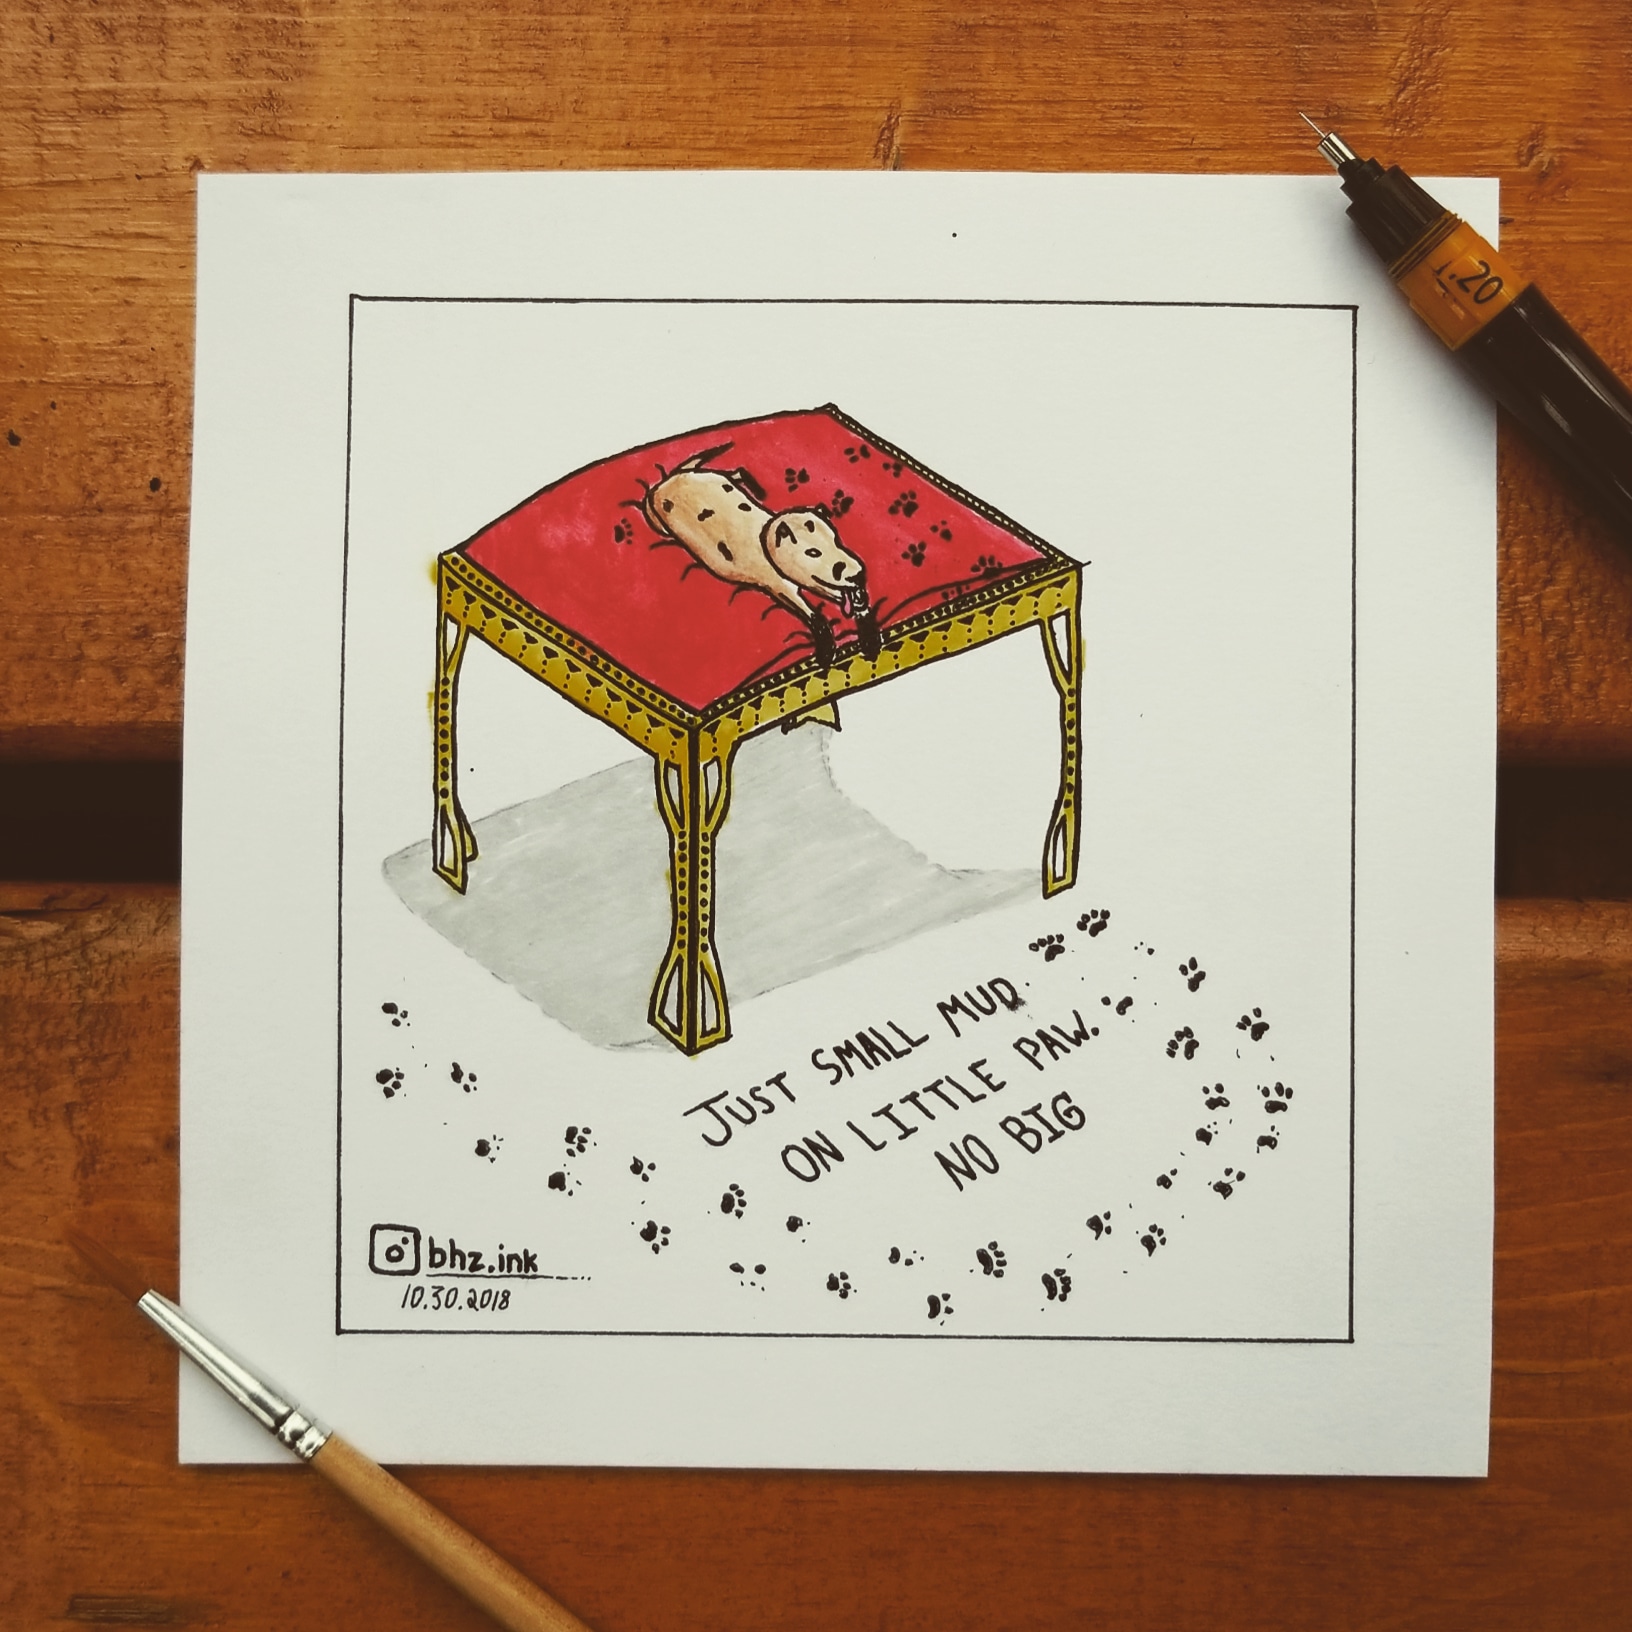 JUST SMALL MUD
ON LITTLE PAW.
NO BIG
bhz.ink
10.30.2018
1.20